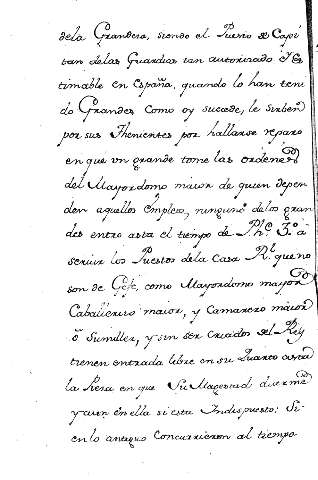 dela Grandeza, siendo el Puesto de Capi
tan delas Guardias tan autorizado y es
timable en España, quando lo han teni
do Grandes como oy sucede, le sirben
por sus Thenientes por hallarse reparo
en que vn grande tome las ordenes
del Mayordomo maior de quien depen
den aquellos empleos, ninguno delos gran
des entro asta el tiempo de Phe. 3º. â
seruir los Puestos dela Casa Rl. que no
son de Gefe, como Mayordomo mayor
Caballerizo maior, y Camarero maior
ô Sumiller, y sin ser Criados del Rey
tienen entrada libre en su Quarto asta
la Pieza en que Su Magestad duerme
y aun en ella si esta Indispuesto: Si
en lo antiguo Concurrieron al tiempo